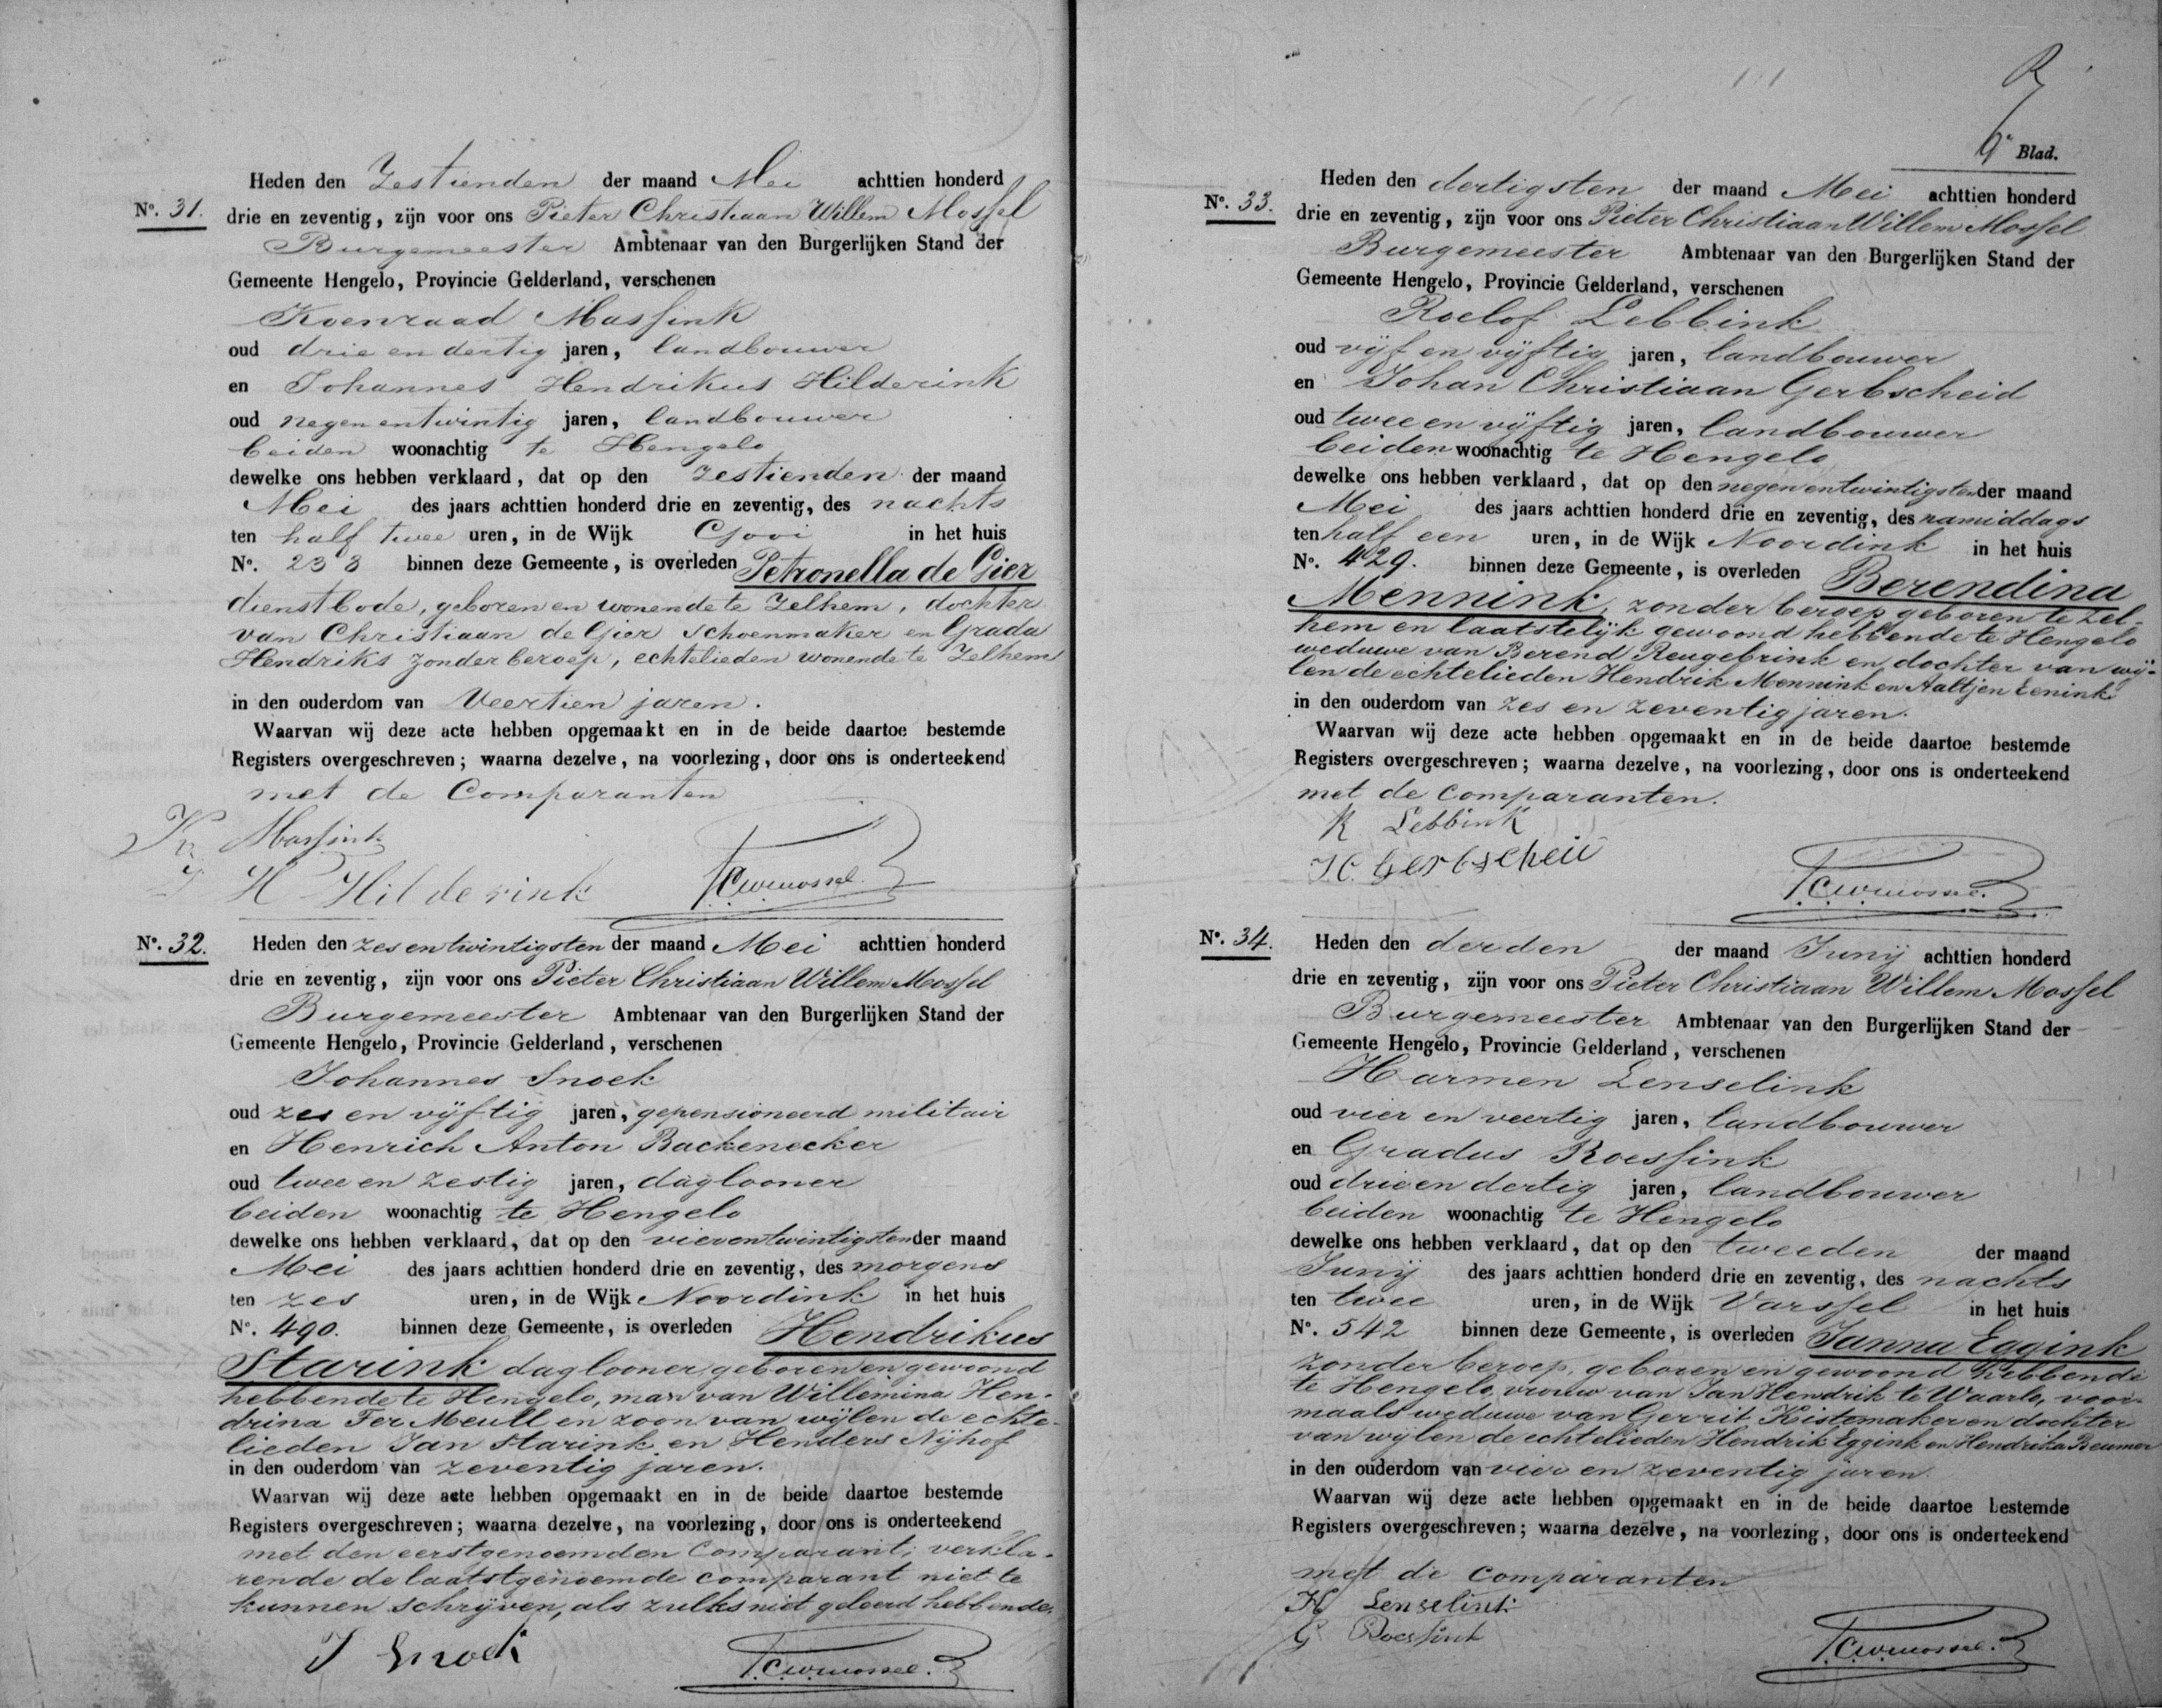 Heden den Zestienden der maand Mei achttien honderd
No. 31. drie en zeventig, zijn voor ons Pieter Christiaan Willem Mossel
Burgemeester Ambtenaar van den Burgerlijken Stand der
Gemeente Hengelo, Provincie Gelderland, verschenen
Koenraad Massink
oud drie en dertig jaren, landbouwer
en Johannes Hendrikus Hilderink
oud negen en twintig jaren, landbouwer
beiden woonachtig te Hengelo
dewelke ons hebben verklaard, dat op den zestienden der maand
Mei des jaars achttien honderd drie en zeventig, des nachts
ten half twee uren, in de Wijk Gooi in het huis
No. 233 binnen deze Gemeente, is overleden Petronella de Gier
dienstbode, geboren en wonende te Zelhem, dochter
van Christiaan de Gier schoenmaker en Grada
Hendriks zonder beroep, echtelieden wonende te Zelhem
in den ouderdom van Veertien jaren.
Waarvan wij deze acte hebben opgemaakt en in de beide daartoe bestemde
Registers overgeschreven; waarna dezelve, na voorlezing, door ons is onderteekend
met de Comparanten
K Massink
J H Hilderink PCWMossel
No. 32. Heden den zes en twintigsten der maand Mei achttien honderd
drie en zeventig, zijn voor ons Pieter Christiaan Willem Mossel
Burgemeester Ambtenaar van den Burgerlijken Stand der
Gemeente Hengelo, Provincie Gelderland, verschenen
Johannes Snoek
oud zes en vijftig jaren, gepensioneerd militair
en Henrich Anton Backenecker
oud twee en zestig jaren, daglooner
beiden woonachtig te Hengelo
dewelke ons hebben verklaard, dat op den vierentwintigsten der maand
Mei des jaars achttien honderd drie en zeventig, des morgens
ten zes uren, in de Wijk Noordink in het huis
No. 490. binnen deze Gemeente, is overleden Hendrikus
Starink daglooner geboren en gewoond
hebbende te Hengelo, man van Willemina Hen-
drina Ter Meull en zoon van wijlen de echte-
lieden Jan Starink en Henders Nijhof
in den ouderdom van zeventig jaren.
Waarvan wij deze acte hebben opgemaakt en in de beide daartoe bestemde
Registers overgeschreven; waarna dezelve, na voorlezing, door ons is onderteekend
met den eerstgenoemden Comparant; verkla-
rende de laatstgenoemde comparant niet te
kunnen schrijven, als zulks niet geleerd hebbende.
J Snoek PCWMossel
6e Blad.
Heden den dertigsten der maand Mei achttien honderd
No. 33. drie en zeventig, zijn voor ons Pieter Christiaan Willem Mossel
Burgemeester Ambtenaar van den Burgerlijken Stand der
Gemeente Hengelo, Provincie Gelderland, verschenen
Roelof Lebbink
oud vijf en vijftig jaren, landbouwer
en Johan Christiaan Gerbscheid
oud twee en vijftig jaren, landbouwer
beiden woonachtig te Hengelo
dewelke ons hebben verklaard, dat op den negenentwintigsten der maand
Mei des jaars achttien honderd drie en zeventig, des namiddags
ten half een uren, in de Wijk Noordink in het huis
No. 429. binnen deze Gemeente, is overleden Berendina
Mennink, zonder beroep geboren te Zel-
hem en laatstelijk gewoond hebbende te Hengelo
weduwe van Berend Reugebrink en dochter van wij-
len de echtelieden Hendrik Mennink en Aaltjen Eenink
in den ouderdom van zes en zeventig jaren.
Waarvan wij deze acte hebben opgemaakt en in de beide daartoe bestemde
Registers overgeschreven; waarna dezelve, na voorlezing, door ons is onderteekend
met de comparanten.
R Lebbink
PCWMossel
No. 34. Heden den derden der maand Junij achttien honderd
drie en zeventig, zijn voor ons Pieter Christiaan Willem Mossel
Burgemeester Ambtenaar van den Burgerlijken Stand der
Gemeente Hengelo, Provincie Gelderland, verschenen
Harmen Lenselink
oud vier en veertig jaren, landbouwer
en Gradus Roessink
oud drie en dertig jaren, landbouwer
beiden woonachtig te Hengelo
dewelke ons hebben verklaard, dat op den tweeden der maand
Junij des jaars achttien honderd drie en zeventig, des nachts
ten twee uren, in de Wijk Varssel in het huis
No. 542 binnen deze Gemeente, is overleden Janna Eggink
zonder beroep, geboren en gewoond hebbende
te Hengelo, vrouw van Jan Hendrik te Waarlo, voor-
maals weduwe van Gerrit Kistemaker en dochter
van wijlen de echtelieden Hendrik Eggink en Hendrika Beumer
in den ouderdom van vier en zeventig jaren
Waarvan wij deze acte hebben opgemaakt en in de beide daartoe bestemde
Registers overgeschreven; waarna dezelve, na voorlezing, door ons is onderteekend
met de comparanten
H Lenselink
G Roessink PCWMossel